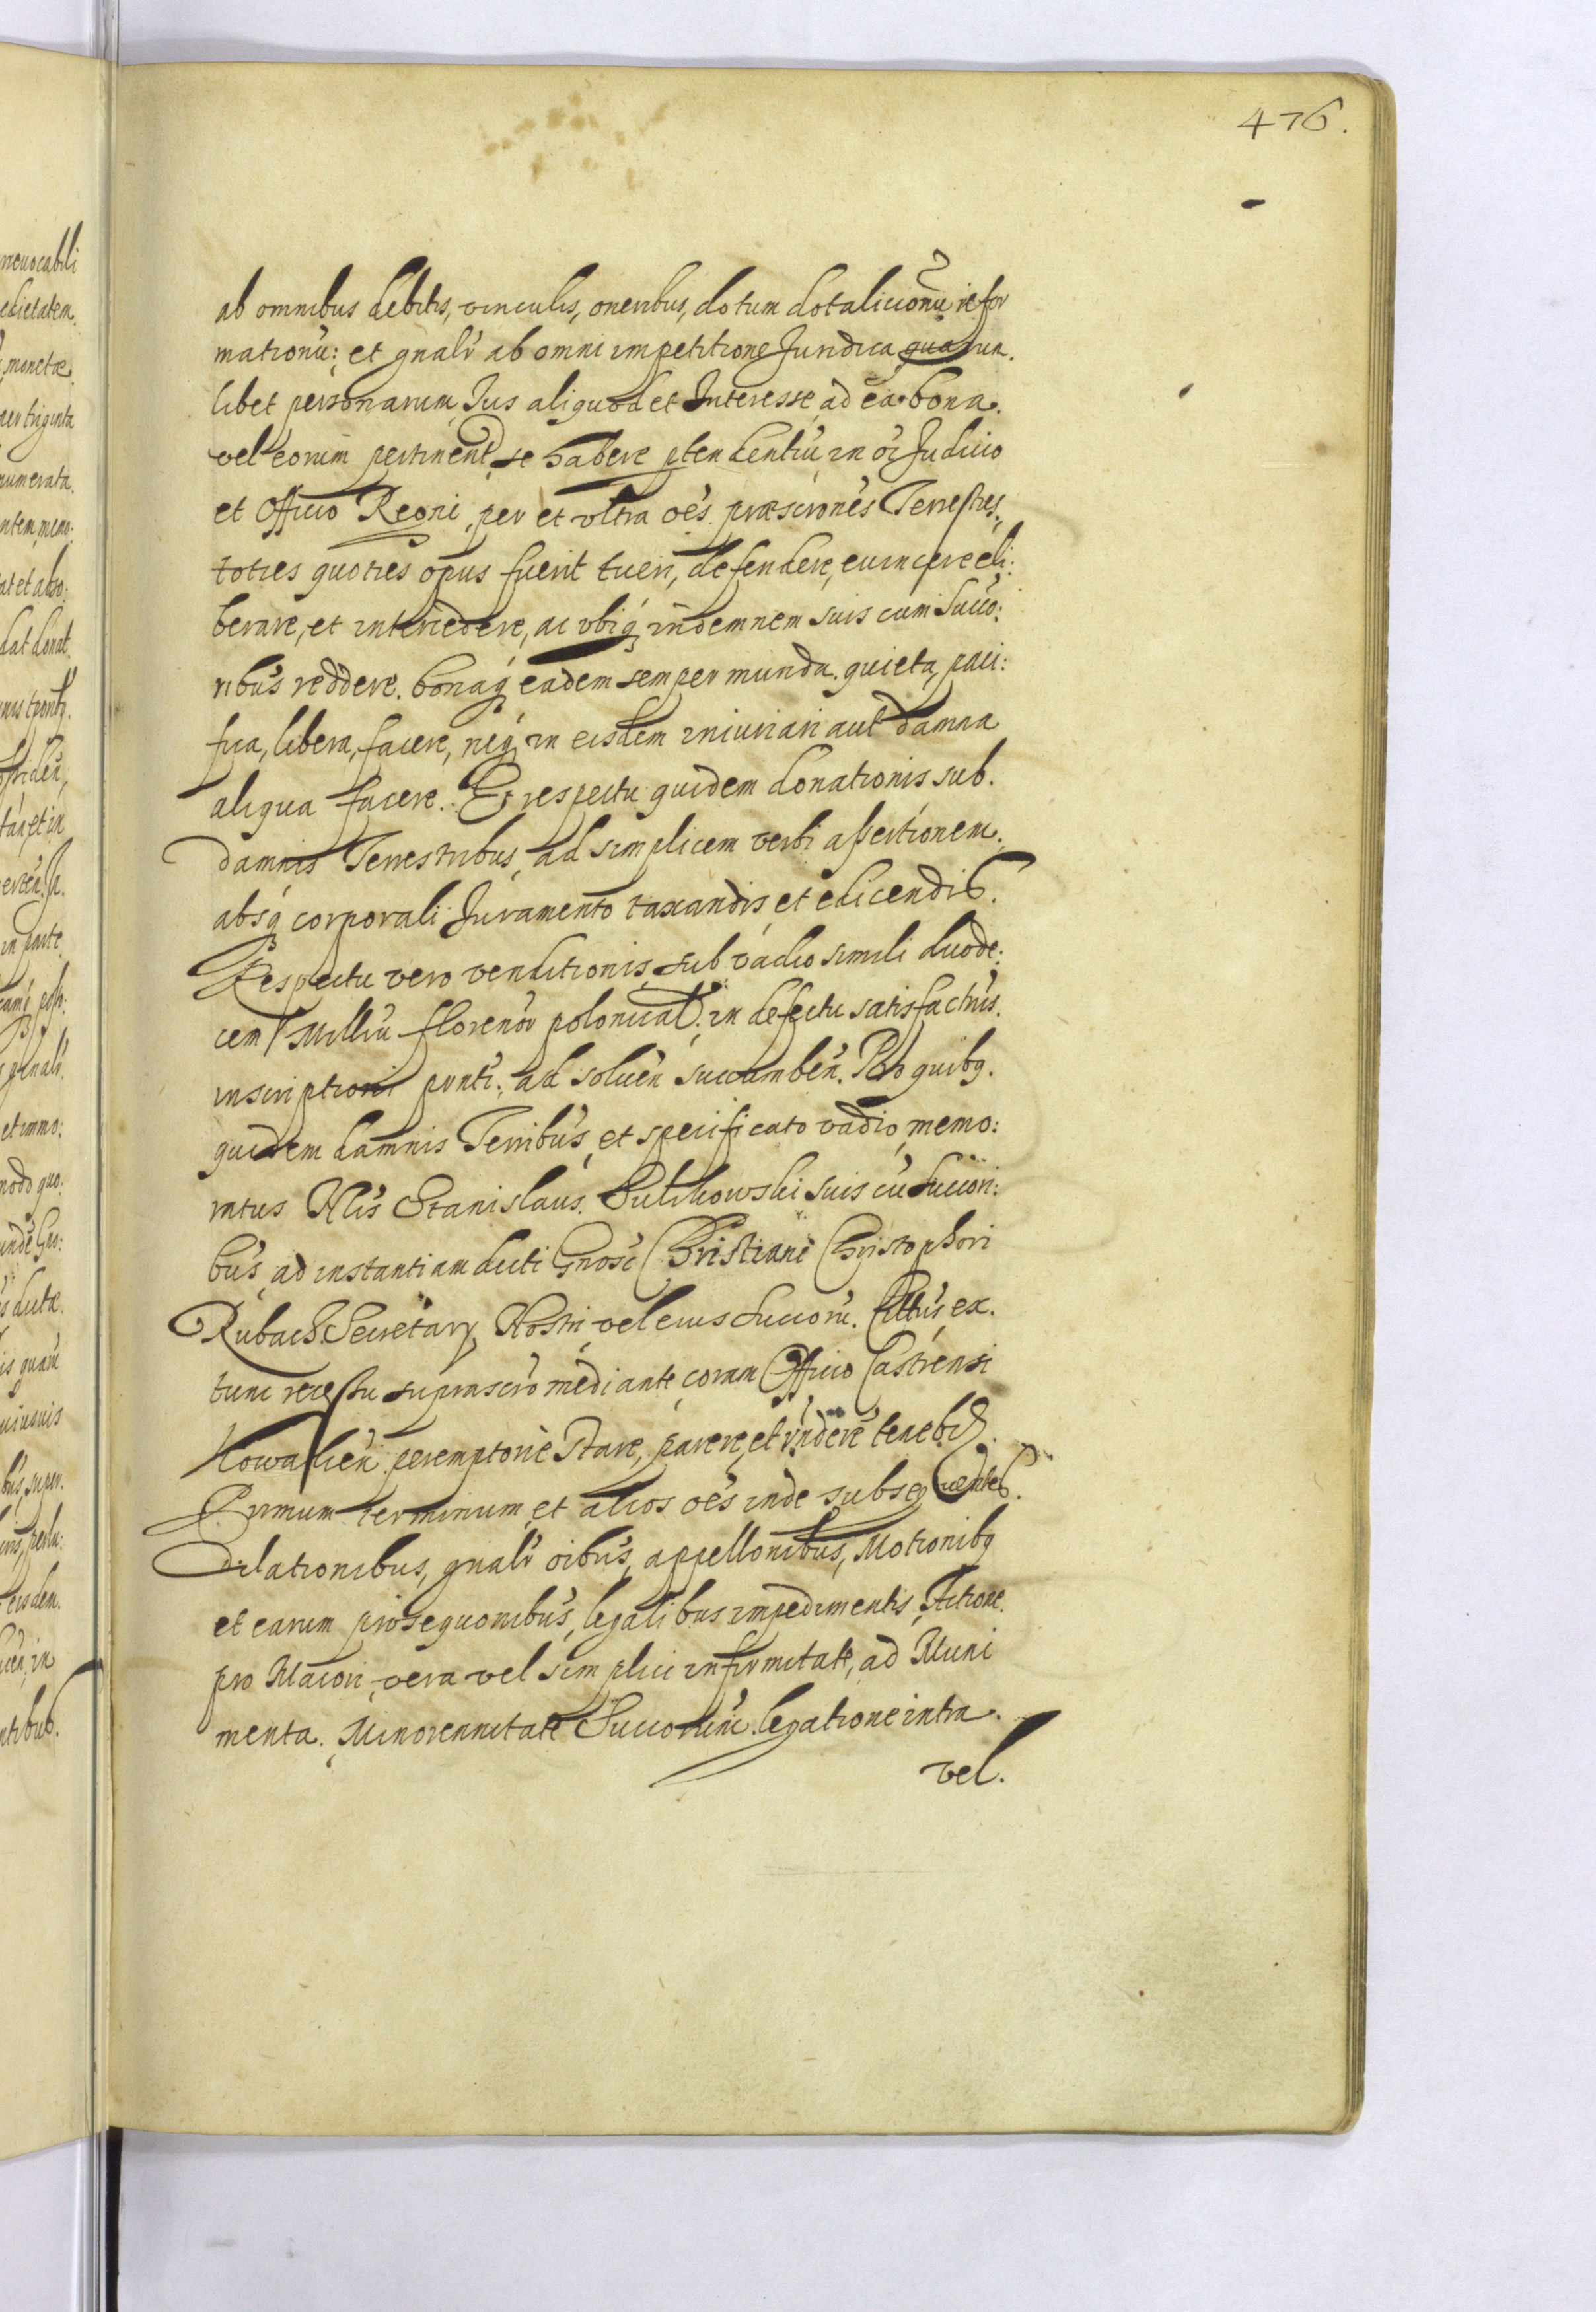 476.
ab omnibus debitis, vinculis, oneribus, dotum dotalicionũ refor
mationũ: et gnalr ab omni impetitione Juridica quarun
libet personarum Jus aliquod et Interesse, ad ea bona.
vel eorum pertinent se habere ptendentiũ in oi Judicio
et Officio Regni, per et ultra oes præscriones Terrestres,
toties quoties opus fuerit tueri, defendere, evincere eli:
berare, et intercedere, ac ubiq indemnem suis cum Succo:
ribus reddere. bonaq eadem semper munda. quieta, paci:
fica, libera, facere, neq in eisdem iniuriari aut damna
aliqua facere. Et respectu quidem donationis sub.
damnis Terrestribus, ad simplicem verbi assertionem.
absq corporali Juramento taxandis et edicendis.
Respectu vero venditionis, sub vadio simili duode:
cem Milliũ florenor polonical: in defectu satisfactnis.
inscriptioni pnti: ad soluen succumben. Pro quibq.
quidem damnis Terribus, et specificato vadio, memo:
ratus Nlis Stanislaus. Sulikowski suis cũ succori:
bus, ad instantiam dicti Gnosi Christiani Christophori
Rubach Secretary Nostri, vel eius Succorũ. Cittus, ex.
tunc recessu suprascro mediante, coram Officio Castrensi
Kowalien peremptorie Stare, parere, et rndere tenebr.
Primum terminum, et alios oes inde subsequentes.
Dilationibus, gnalr oibus, appellonibus, Motionibq
et earum prosequonibus, legalibus impedimentis, Actione.
pro Maiori, vera vel simplici infirmitate, ad Muni
menta. Minorennitate Succorum. legatione intra.
vel.